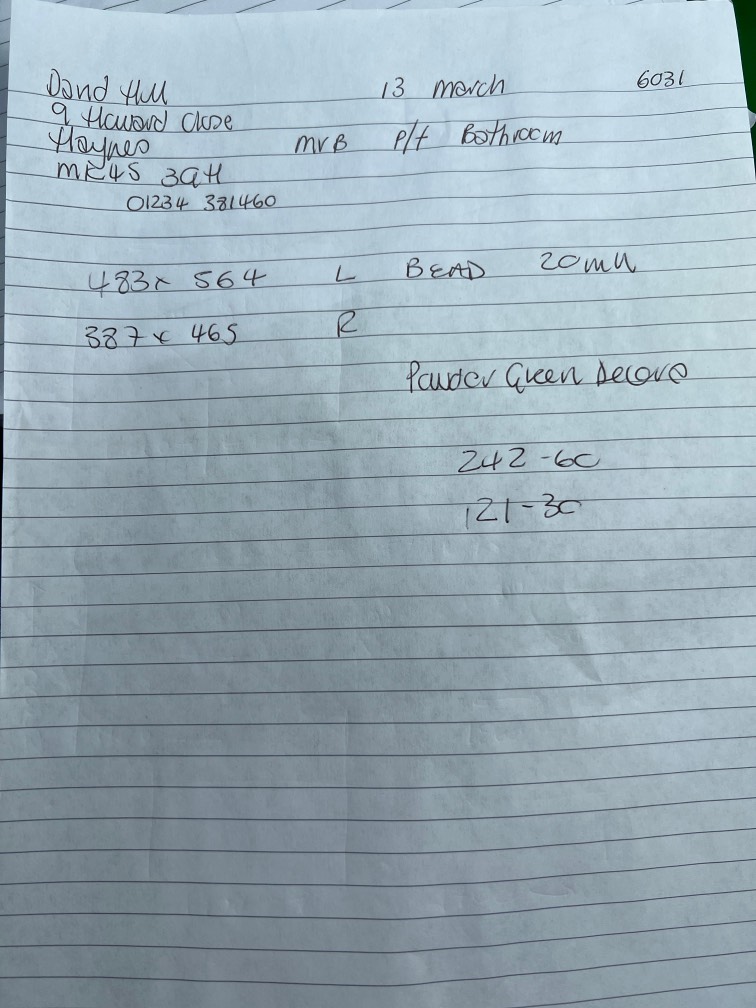 David Hill 13 march 6031
9 Howard Close
Haynes MVB P/f Bathroom
MK45 3QH
01234 381460
483 x 564 L BEAD 20mm
387 x 465 R
Powder Green Decora
242-60
121-30